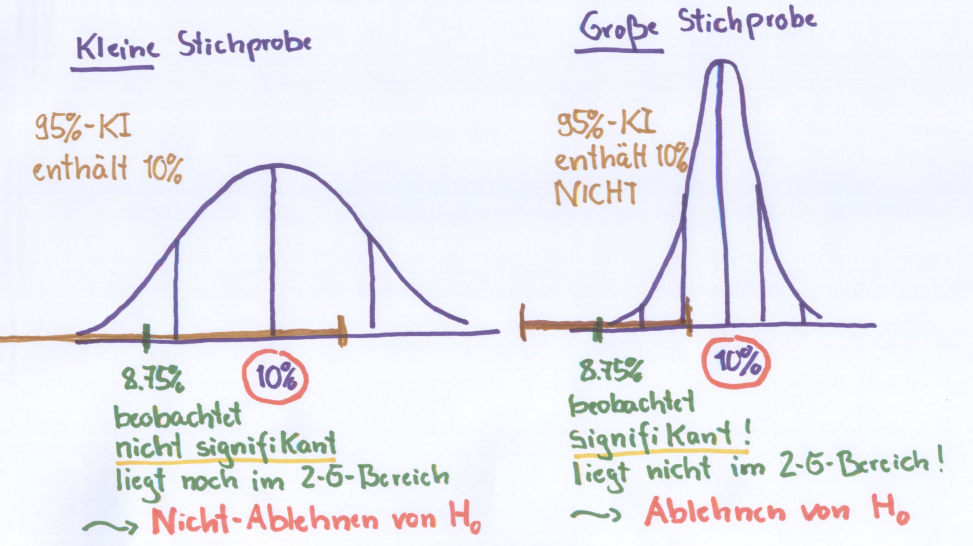 Kleine Stichprobe
95%-KI
enthält 10%
8.75%
10%
beobachtet
nicht signifikant
liegt noch im 2-σ-Bereich
Nicht-Ablehnen von H₀
Große Stichprobe
95%-KI
enthält 10%
NICHT
8.75%
10%
beobachtet
signifikant!
liegt nicht im 2-σ-Bereich!
Ablehnen von H₀